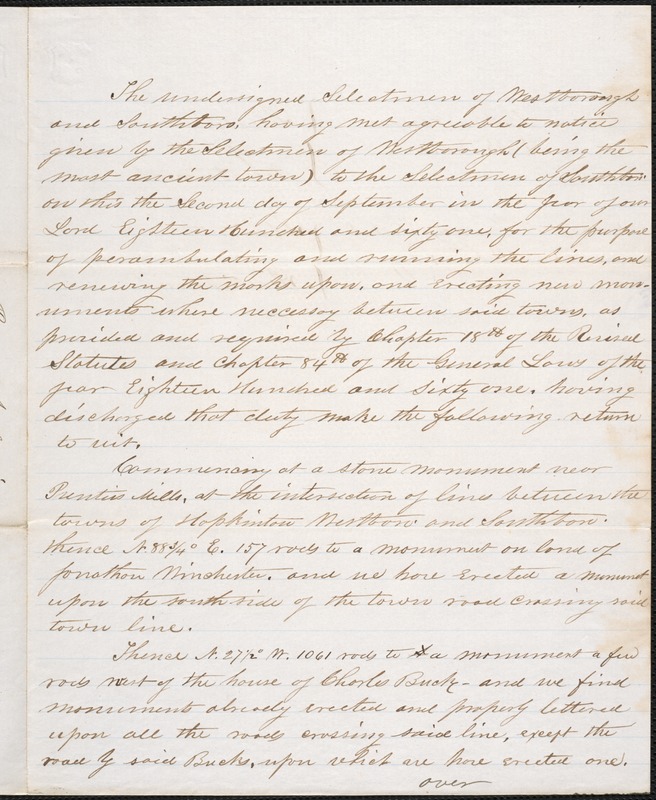 The undersigned Selectmen of Westborough
and Southboro, having met agreeable to notice
given by the Selectmen of Westborough (being the
most ancient town) to the Selectmen of Southboro
on this the Second day of September in the year of our
Lord Eighteen Hundred and sixty one, for the purpose
of perambulating and running the lines, and
renewing the marks upon, and Erecting new mon-
uments where neccessy between said towns, as
provided and required by Chapter 18th of the Revised
Statutes and Chapter 84th of the General Laws of the
year Eighteen Hundred and Sixty one. having
discharged that duty make the following return
to wit.
Commencing at a stone monument near
Prentiss Mills, at the intersection of lines between the
towns of Hopkinton Westboro and Southboro.
thence N. 88 3/4° E. 157 rods to a monument on land of
Jonathan Winchester. and we have Erected a monument
upon the south side of the town road crossing said
town line.
Thence N. 27 1/2° W. 1061 rods to a monument a few
rods west of the house of Charles Buck - and we find
monuments already erected and properly lettered
upon all the roads crossing said line, except the
road by said Bucks, upon which we have erected one.
over